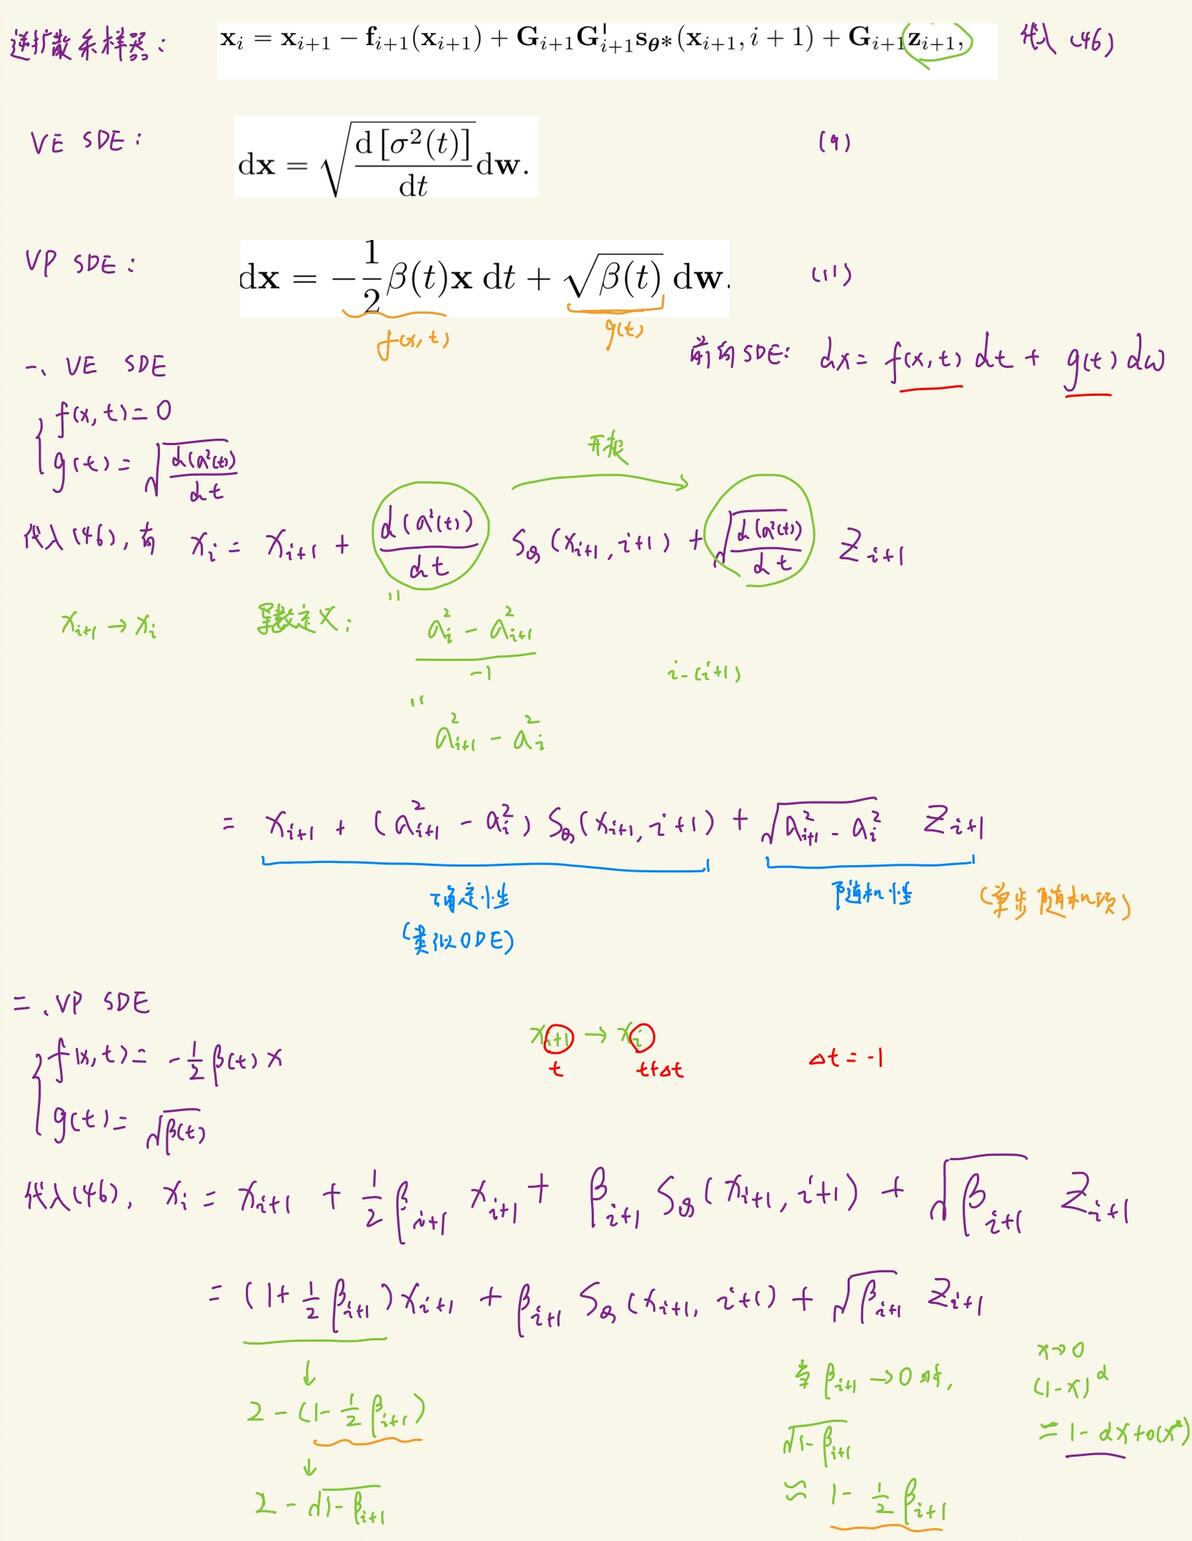 逆扩散采样器: x_i = x_{i+1} − f_{i+1}(x_{i+1}) + G_{i+1}G^⊤_{i+1}s_{θ*}(x_{i+1}, i + 1) + G_{i+1}z_{i+1}, 代入 (46)
VE SDE: dx = √(d[σ²(t)]/dt) dw. (9)
VP SDE: dx = −1/2 β(t)x dt + √β(t) dw. (11)
f(x,t) g(t)
前向SDE: dx = f(x,t) dt + g(t) dω
一、VE SDE
f(x,t) = 0
g(t) = √(d(σ²(t))/dt)
开根
代入(46), 有 x_i = x_{i+1} + d(σ²(t))/dt S_θ(x_{i+1}, i+1) + √(d(σ²(t))/dt) Z_{i+1}
x_{i+1} → x_i 导数定义: " (σ²_i − σ²_{i+1})/−1 i-(i+1)
" σ²_{i+1} − σ²_i
= x_{i+1} + (σ²_{i+1} − σ²_i) S_θ(x_{i+1}, i+1) + √(σ²_{i+1} − σ²_i) Z_{i+1}
确定性 随机性 (单步随机项)
(类似ODE)
二、VP SDE
x_{i+1} → x_i
t t+Δt Δt = -1
f(x,t) = −1/2 β(t) x
g(t) = √β(t)
代入(46), x_i = x_{i+1} + 1/2 β_{i+1} x_{i+1} + β_{i+1} S_θ(x_{i+1}, i+1) + √β_{i+1} Z_{i+1}
= (1 + 1/2 β_{i+1}) x_{i+1} + β_{i+1} S_θ(x_{i+1}, i+1) + √β_{i+1} Z_{i+1}
↓
2 − (1 − 1/2 β_{i+1})
↓
2 − √(1 − β_{i+1})
当 β_{i+1} → 0 时,
√(1 − β_{i+1})
≈ 1 − 1/2 β_{i+1}
x→0
(1−x)^α
= 1 − αx + o(x²)